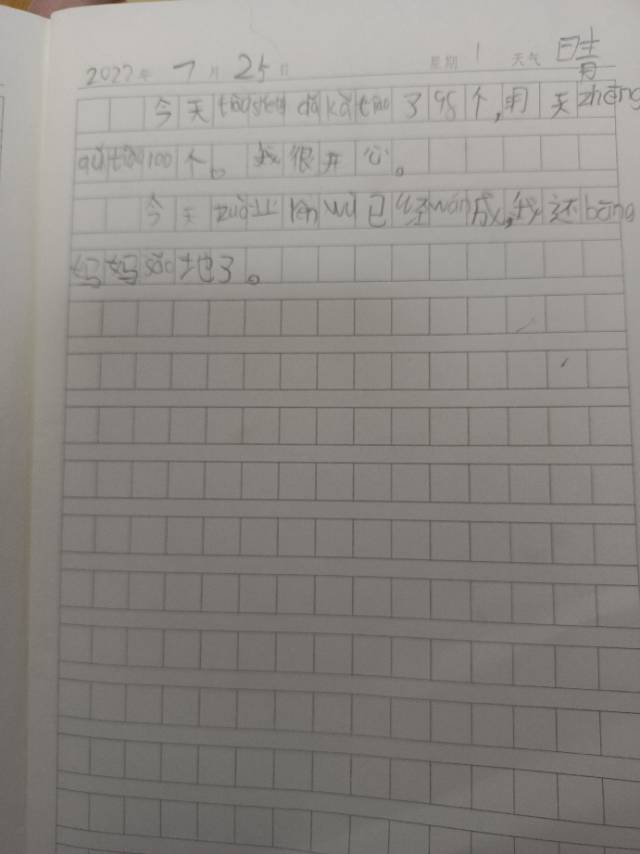 2022年 7月 25日 星期 1 天气 晴
今天 tiào shéng dǎ kǎ tiào 了 95 个,明天 zhēng
qǔ tiào 100 个。我很开心。
今天 zuò 业 rèn wù 已经 wán 成,我还 bāng
妈妈 sǎo 地了。